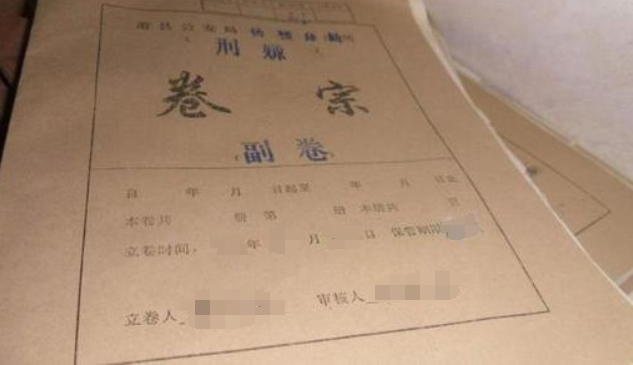 县公安局
刑
卷 宗
副 卷
自 年 月 日起至 年 月 日止
本卷共 册 第 册 本册共 页
立卷时间: 年 月 日 保管期限
立卷人 审核人